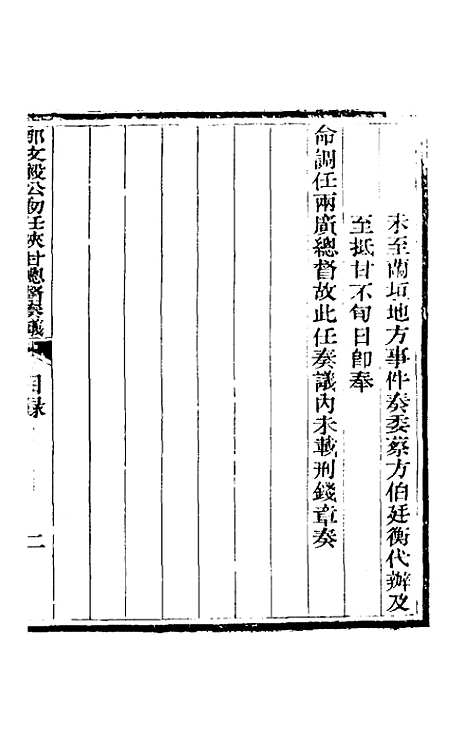 未至蘭垣地方事件奏委蔡方伯廷衡代辦及
至抵甘不旬日卽奉
命調任兩廣總督故此任奏議內未載刑錢章奏
那文毅公初任陝甘總督奏議
目錄
二